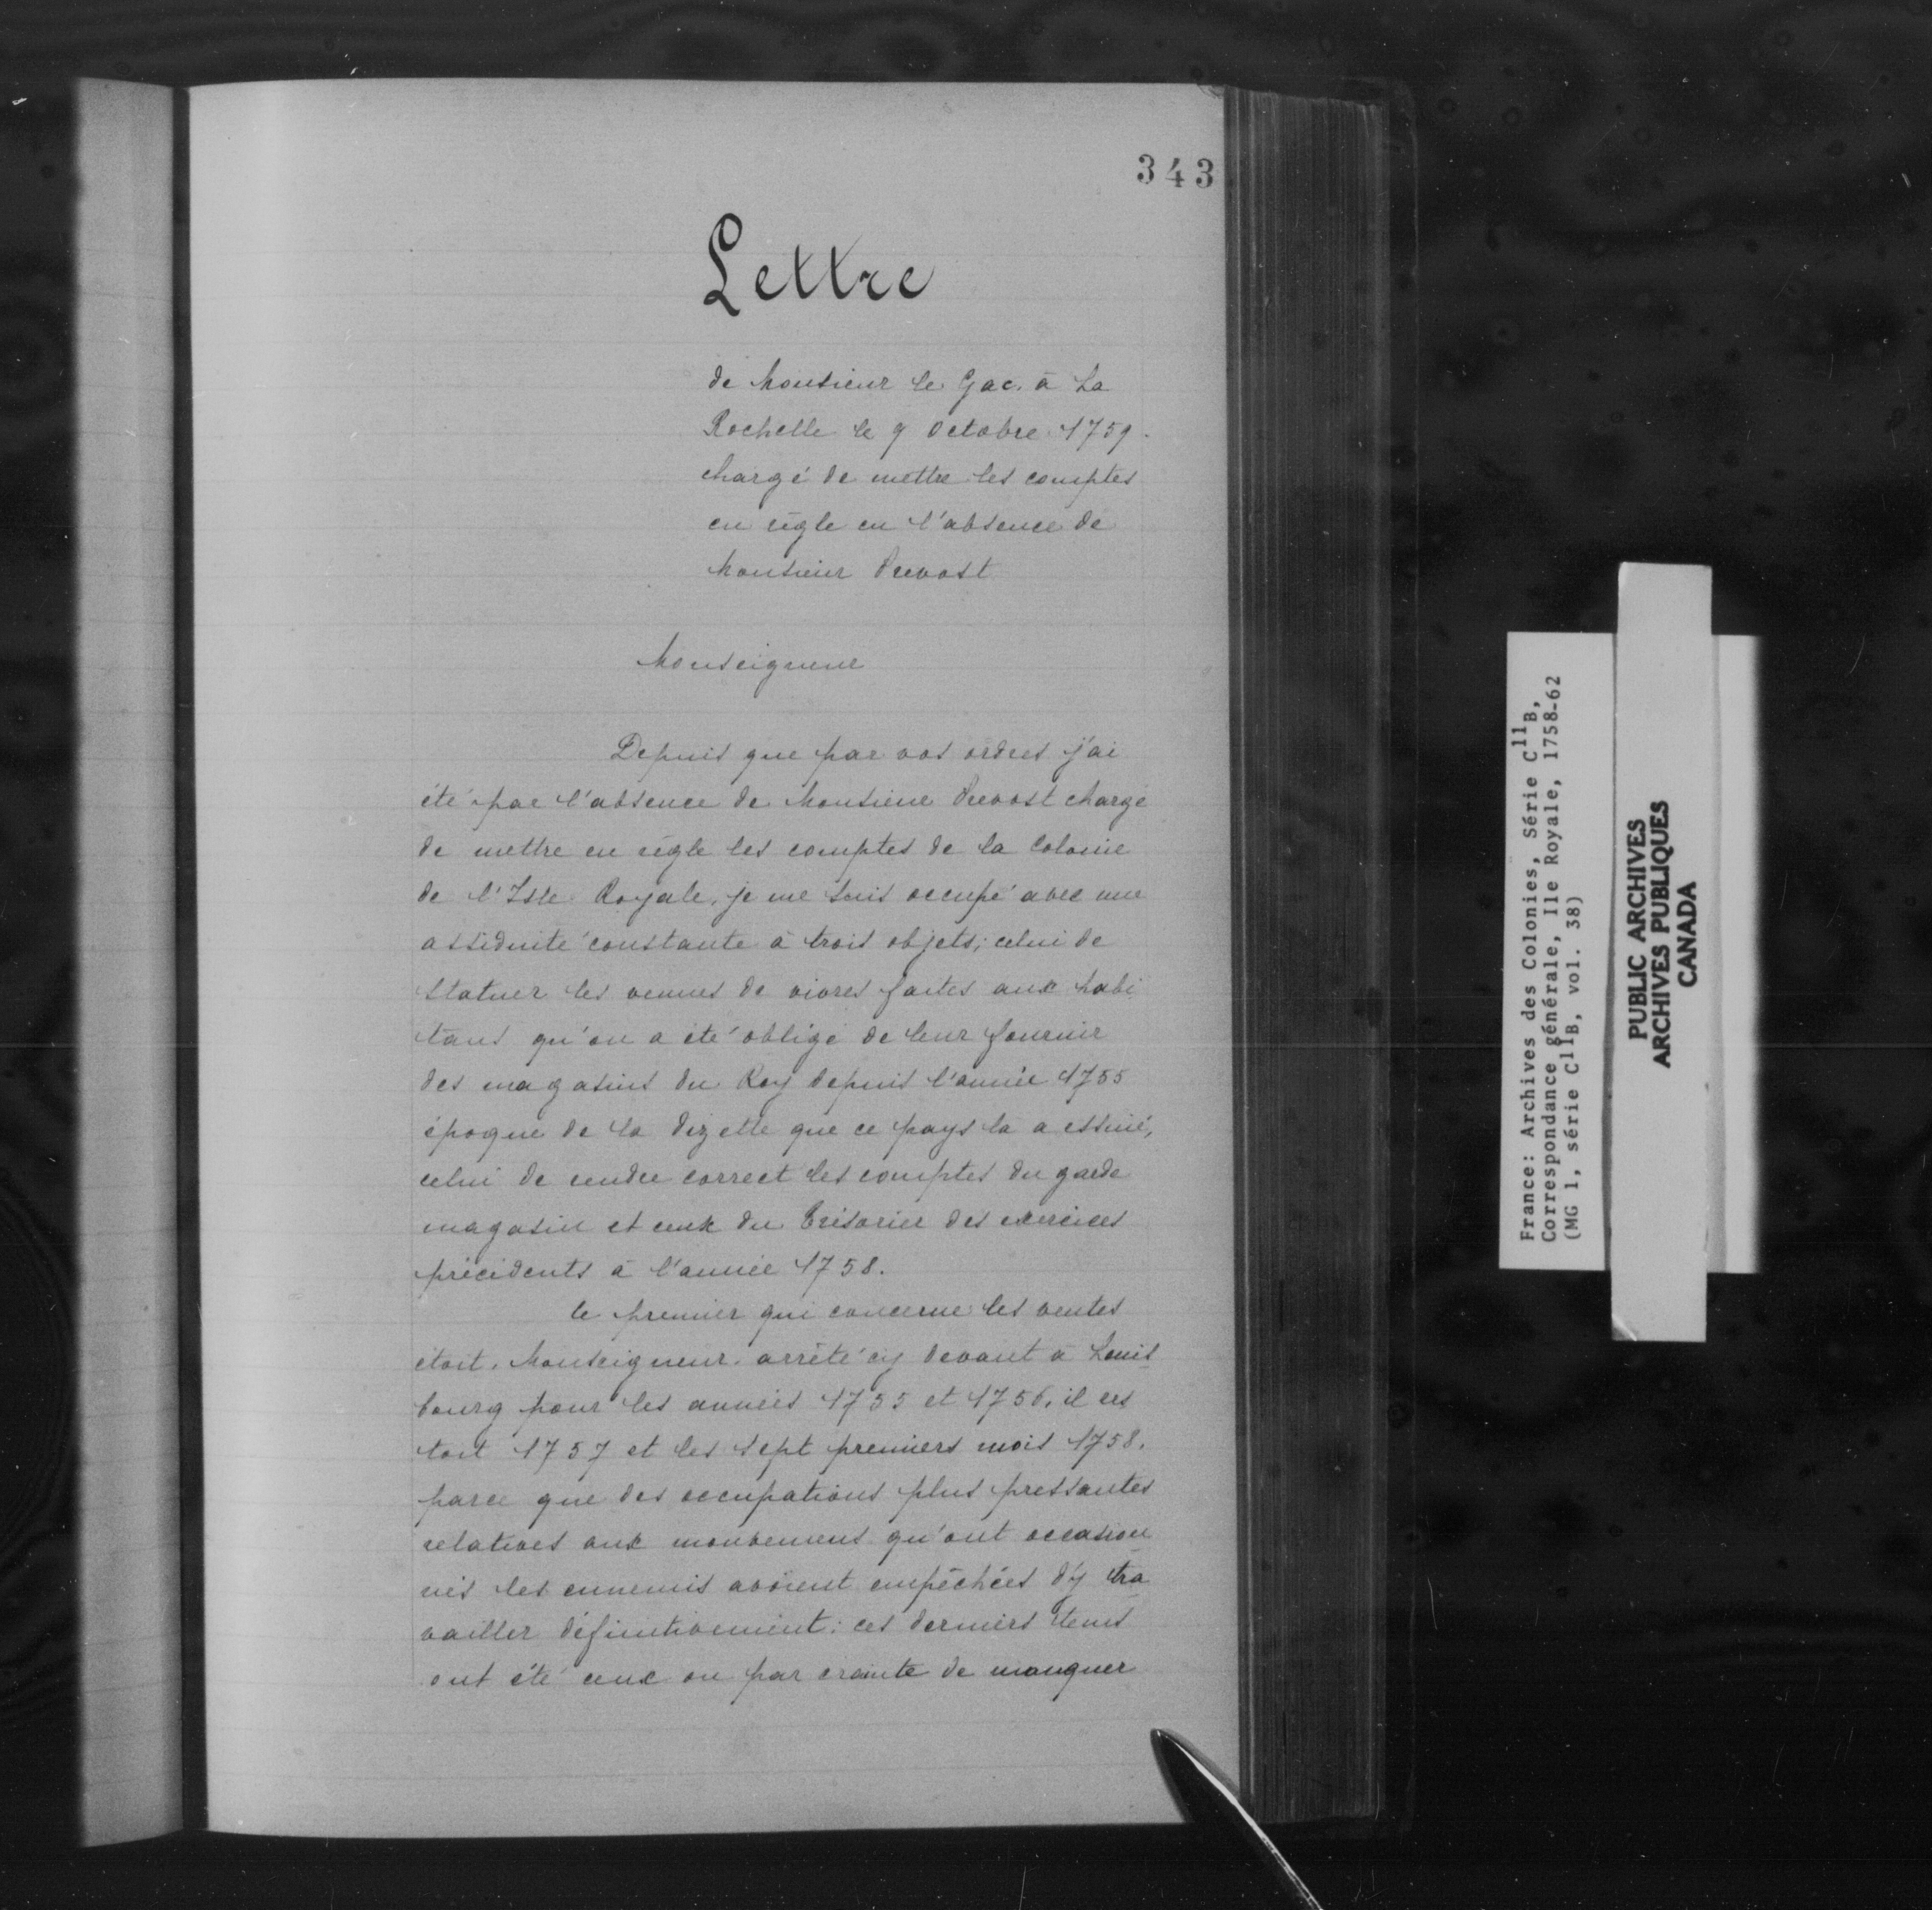 343
Lettre
de Monsieur le Gac. à La
Rochelle le 9 Octobre 1759.
chargé de mettre les comptes
en règle en l'absence de
Monsieur Prevost
Monseigneur
Depuis que par vos ordres j'ai
été par l'absence de Monsieur Prevost chargé
de mettre en règle les comptes de la Colonie
de l'Isle Royale, je me suis occupé avec une
assiduité constante à trois objets; celui de
statuer les venues de vivres faites aux habi
tans qu'on a été obligé de leur fournir
des magasins du Roy depuis l'année 1755
époque de la dizette que ce pays la a essuié,
celui de rendre correct les comptes du garde
magasin et ceux du Trésorier des exercices
précédents à l'année 1758.
le premier qui concerne les ventes
etoit. Monseigneur. arrêté cy devant à Louis
bourg pour les années 1755 et 1756, il res
toit 1757 et les sept premiers mois 1758.
parce que des occupations plus pressantes
relatives aux mouvemens qu'ont occasion
nés les ennemis avoient empêchées d'y tra
vailler définitivement: ces derniers tems
ont été ceux ou par crainte de manquer
France: Archives des Colonies, Série C11B,
Correspondance générale, Ile Royale, 1758-62
(MG 1, série C11B, vol. 38)
PUBLIC ARCHIVES
ARCHIVES PUBLIQUES
CANADA